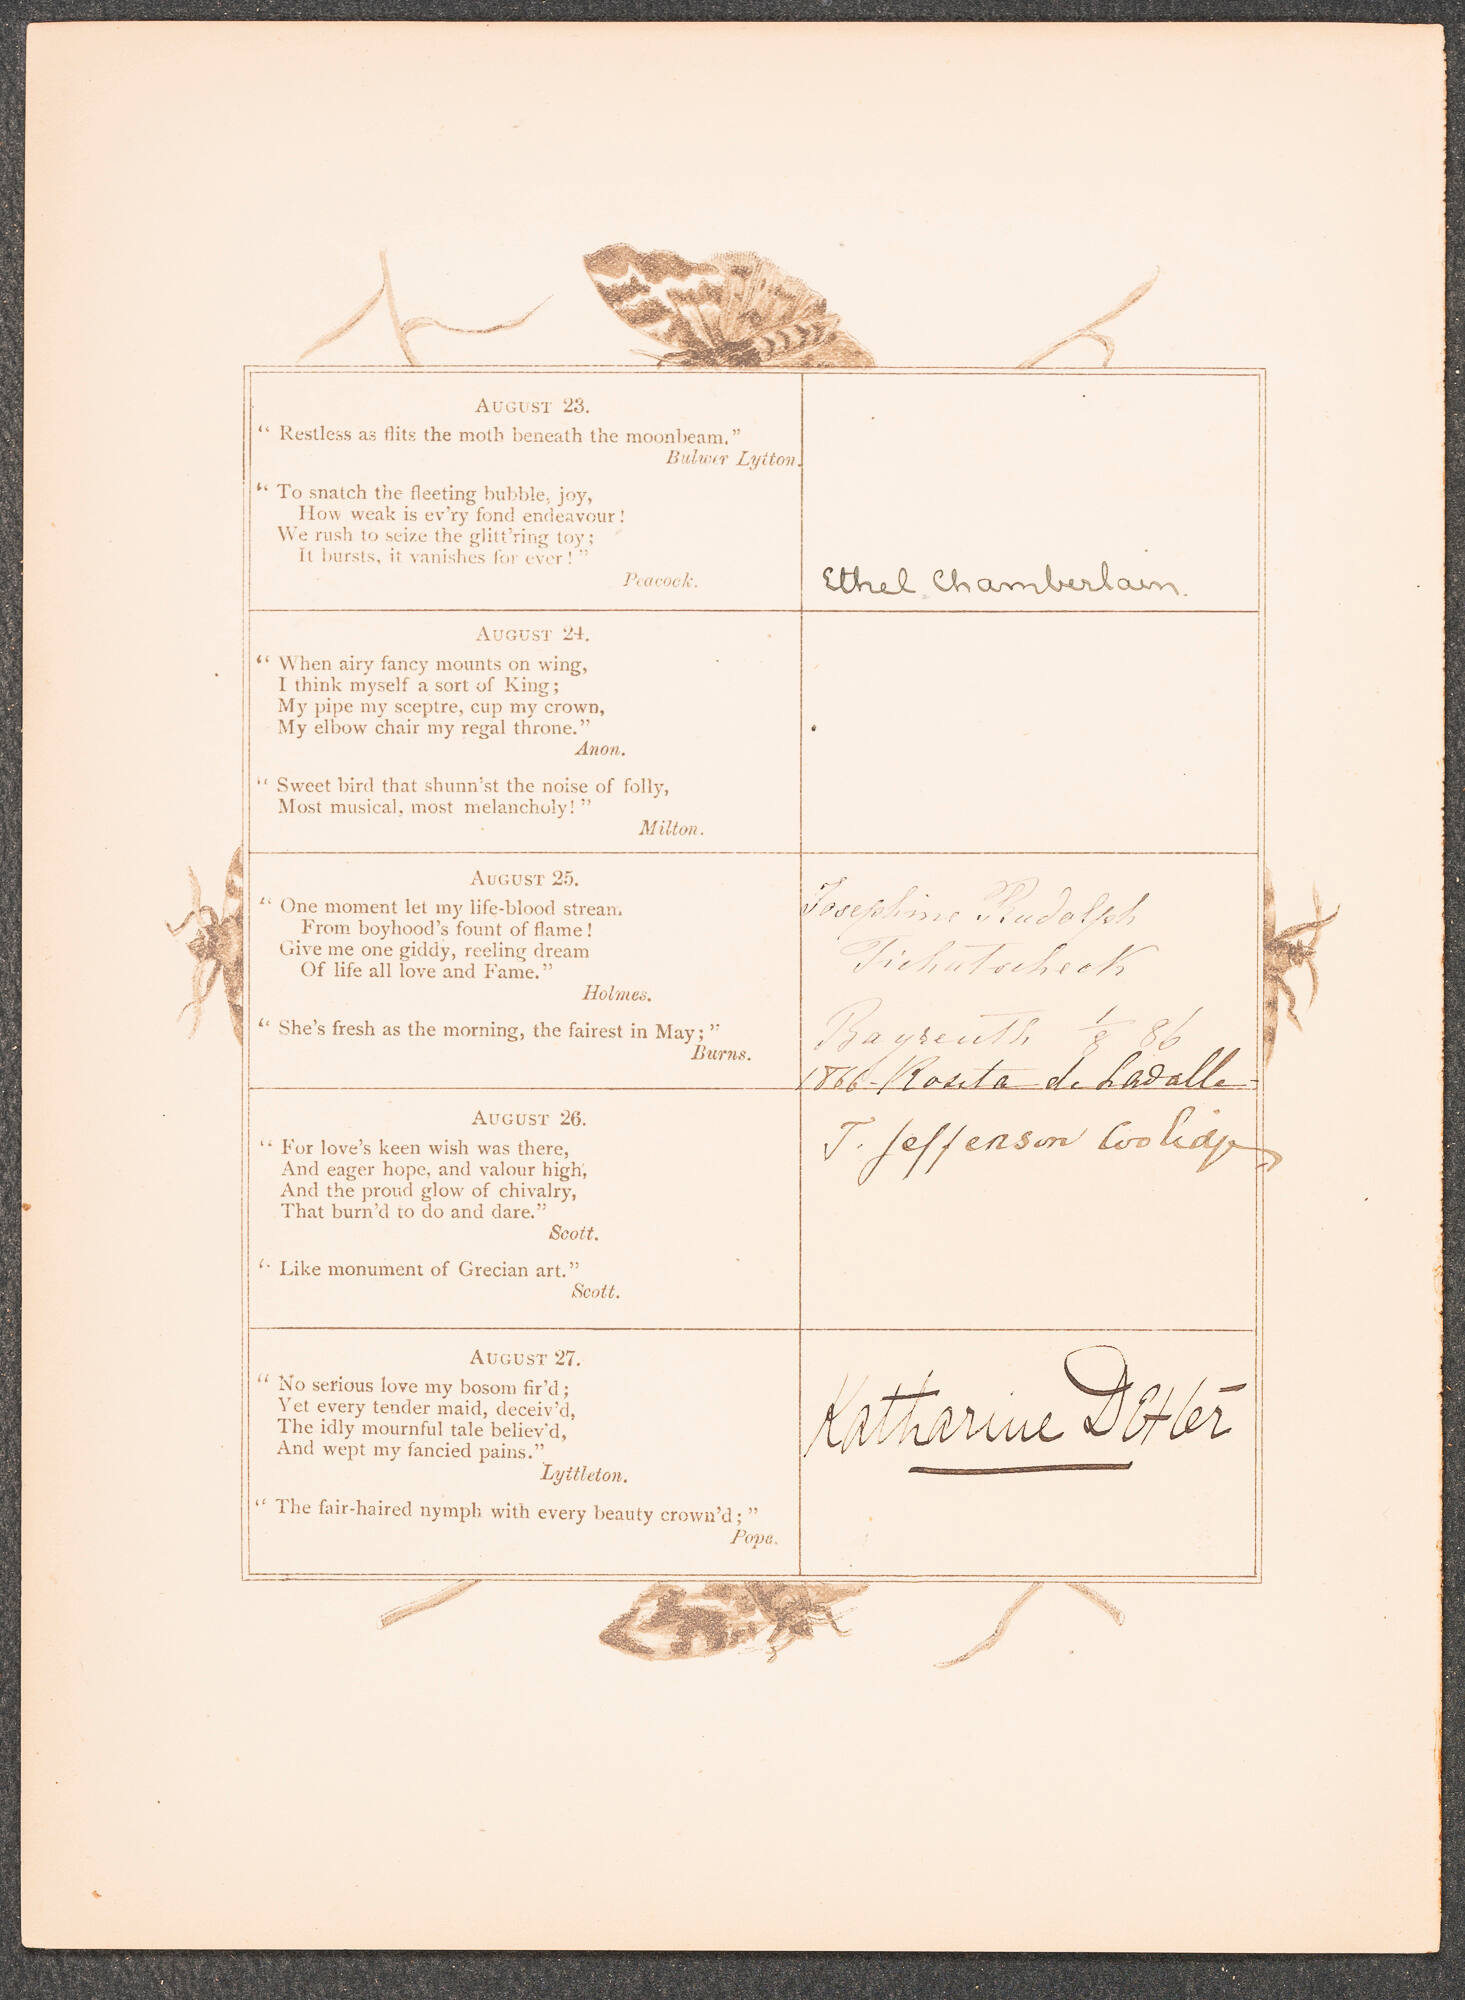 AUGUST 23.
“ Restless as flits the moth beneath the moonbeam.”
Bulwer Lytton.
“ To snatch the fleeting bubble, joy,
How weak is ev'ry fond endeavour!
We rush to seize the glitt'ring toy;
It bursts, it vanishes for ever!”
Peacock.
Ethel Chamberlain.
AUGUST 24.
“ When airy fancy mounts on wing,
I think myself a sort of King;
My pipe my sceptre, cup my crown,
My elbow chair my regal throne.”
Anon.
“ Sweet bird that shunn'st the noise of folly,
Most musical, most melancholy!”
Milton.
AUGUST 25.
“ One moment let my life-blood stream
From boyhood's fount of flame!
Give me one giddy, reeling dream
Of life all love and Fame.”
Holmes.
“ She's fresh as the morning, the fairest in May;”
Burns.
Josephine Rudolph
Tichatscheck
Bayreuth 1/8 86
1866 - Rosita de Lavalle -
AUGUST 26.
“ For love's keen wish was there,
And eager hope, and valour high,
And the proud glow of chivalry,
That burn'd to do and dare.”
Scott.
“ Like monument of Grecian art.”
Scott.
T. Jefferson Coolidge
AUGUST 27.
“ No serious love my bosom fir'd;
Yet every tender maid, deceiv'd,
The idly mournful tale believ'd,
And wept my fancied pains.”
Lyttleton.
“ The fair-haired nymph with every beauty crown'd;”
Pope.
Katharine Dexter